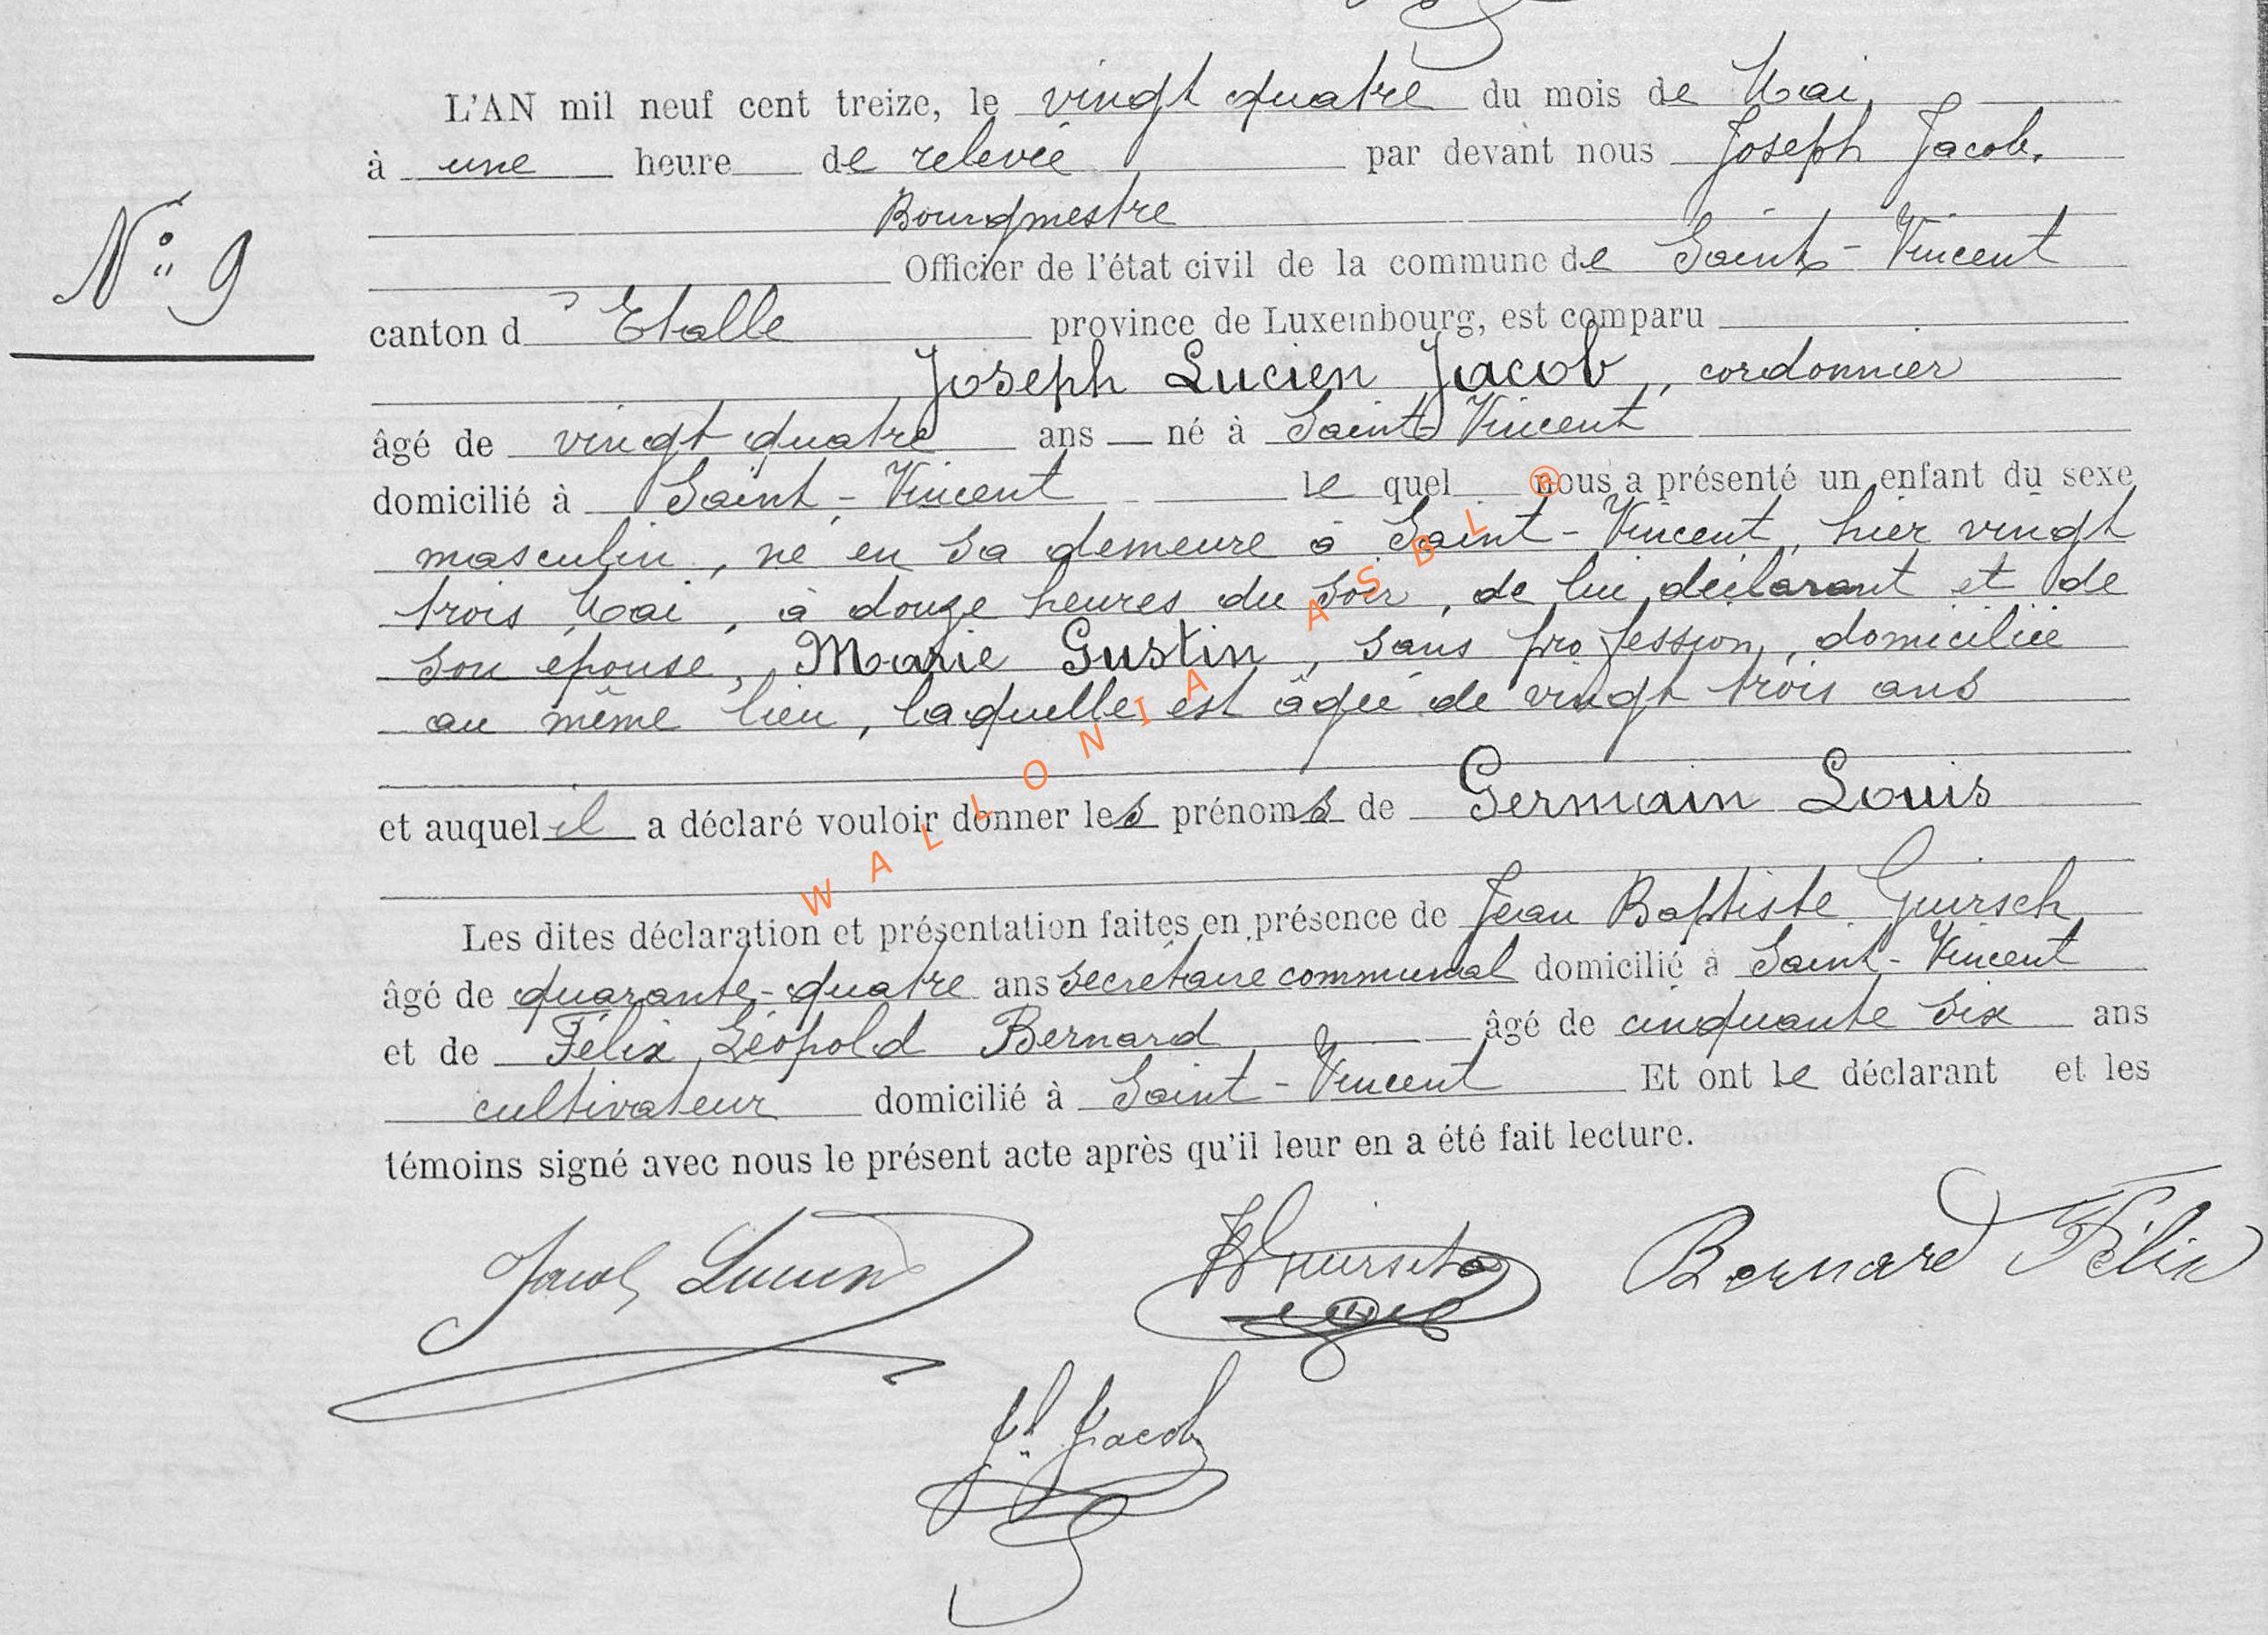 L'AN mil neuf cent treize, le vingt quatre du mois de Mai,
à une heure de relevée par devant nous Joseph Jacob,
Bourgmestre
N° 9
Officier de l'état civil de la commune de Saint-Vincent
canton d'Etalle province de Luxembourg, est comparu
Joseph Lucien Jacob, cordonnier
âgé de vingt quatre ans né à Saint Vincent
domicilié à Saint-Vincent le quel nous a présenté un enfant du sexe
masculin, né en sa demeure à Saint-Vincent, hier vingt
trois Mai, à douze heures du soir, de lui déclarant et de
son épouse, Marie Gustin, sans profession, domiciliée
au même lieu, laquelle est âgée de vingt trois ans
et auquel il a déclaré vouloir donner les prénoms de Germain Louis
Les dites déclaration et présentation faites en présence de Jean Baptiste Guirsch
âgé de quarante-quatre ans secrétaire communal domicilié à Saint-Vincent
et de Félix Léopold Bernard âgé de cinquante six ans
cultivateur domicilié à Saint-Vincent Et ont le déclarant et les
témoins signé avec nous le présent acte après qu'il leur en a été fait lecture.
Jacob Lucien JBGuirsch Bernard Félix
Jh Jacob
WALLONIA ASBL ®